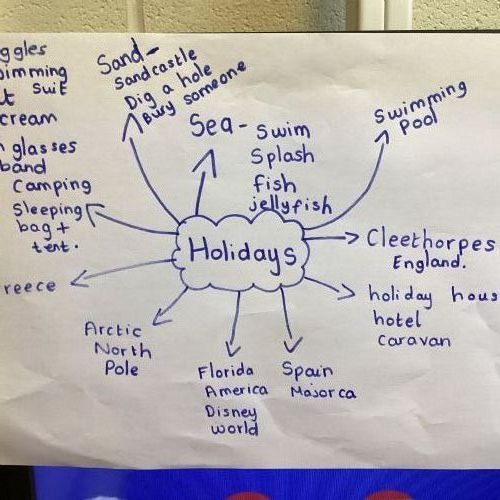 ggles
imming
suit
cream
glasses
band
Sand-
Sandcastle
Dig a hole
Bury someone
Sea- Swim
Splash
fish
jellyfish
Swimming
Pool
Camping
Sleeping
bag +
tent.
Holidays
Cleethorpes
England.
reece
holiday hous
hotel
caravan
Arctic
North
Pole
Florida
America
Disney
world
Spain
Majorca